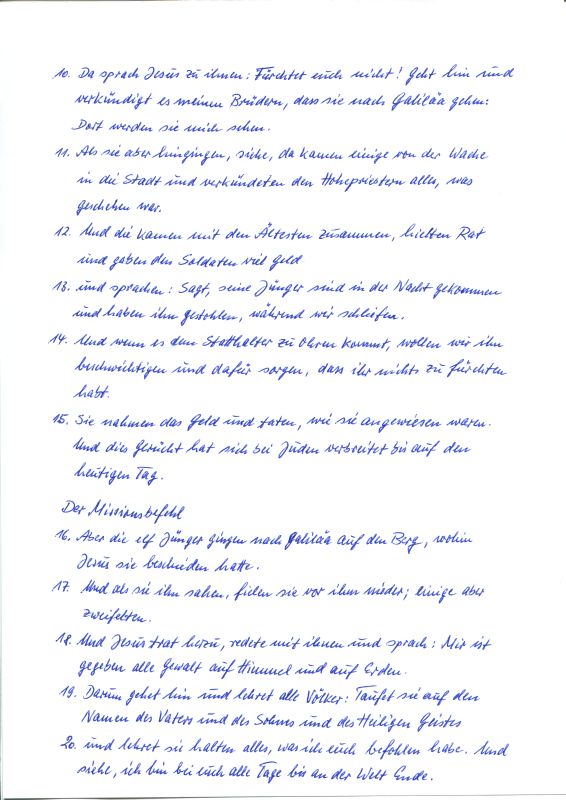 10. Da sprach Jesus zu ihnen: Fürchtet euch nicht! Geht hin und
verkündigt es meinen Brüdern, dass sie nach Galiläa gehen:
Dort werden sie mich sehen.
11. Als sie aber hingingen, siehe, da kamen einige von der Wache
in die Stadt und verkündeten den Hohepriestern alles, was
geschehen war.
12. Und die kamen mit den Ältesten zusammen, hielten Rat
und gaben den Soldaten viel Geld
13. und sprachen: Sagt, seine Jünger sind in der Nacht gekommen
und haben ihn gestohlen, während wir schliefen.
14. Und wenn es dem Statthalter zu Ohren kommt, wollen wir ihn
beschwichtigen und dafür sorgen, dass ihr nichts zu fürchten
habt.
15. Sie nahmen das Geld und taten, wie sie angewiesen waren.
Und dies Gerücht hat sich bei Juden verbreitet bis auf den
heutigen Tag.
Der Missionsbefehl
16. Aber die elf Jünger gingen nach Galiläa auf den Berg, wohin
Jesus sie beschieden hatte.
17. Und als sie ihn sahen, fielen sie vor ihm nieder; einige aber
zweifelten.
18. Und Jesus trat herzu, redete mit ihnen und sprach: Mir ist
gegeben alle Gewalt auf Himmel und auf Erden.
19. Darum gehet hin und lehret alle Völker: Taufet sie auf den
Namen des Vaters und des Sohnes und des Heiligen Geistes
20. und lehret sie halten alles, was ich euch befohlen habe. Und
siehe, ich bin bei euch alle Tage bis an der Welt Ende.